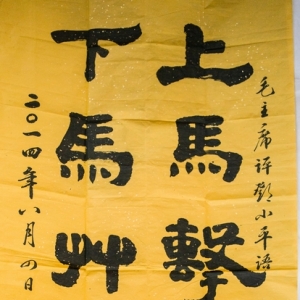 毛主席评邓小平语
上馬擊
下馬艸
二〇一四年八月四日